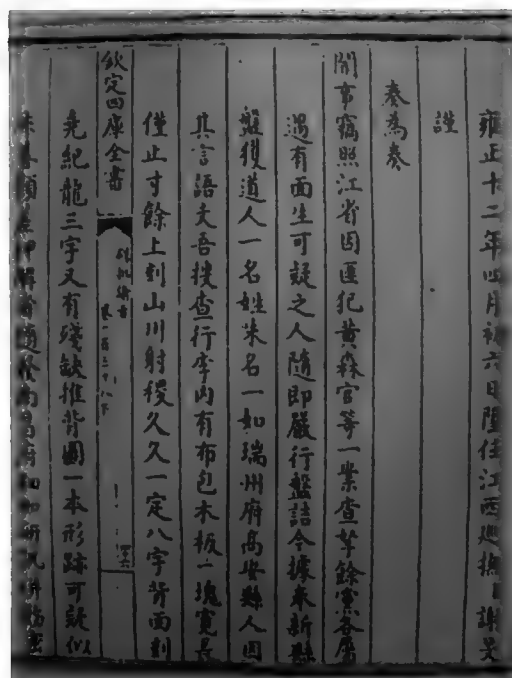 雍正十二年四月初六日陞任江西廵撫謝旻
謹
奏為奏
聞事竊照江省因匪犯黄森官等一案查拏餘黨各屬
遇有面生可疑之人隨即嚴行盤詰今據永新縣
盤獲道人一名姓朱名一如瑞州府髙安縣人因
其言語支吾搜查行李内有布包木板一塊寛長
僅止寸餘上刻山川射稷久久一定八字背面刻
欽定四庫全書
硃批諭㫖
卷一百三十八下
堯紀龍三字又有殘缺推背圖一本形跡可疑似